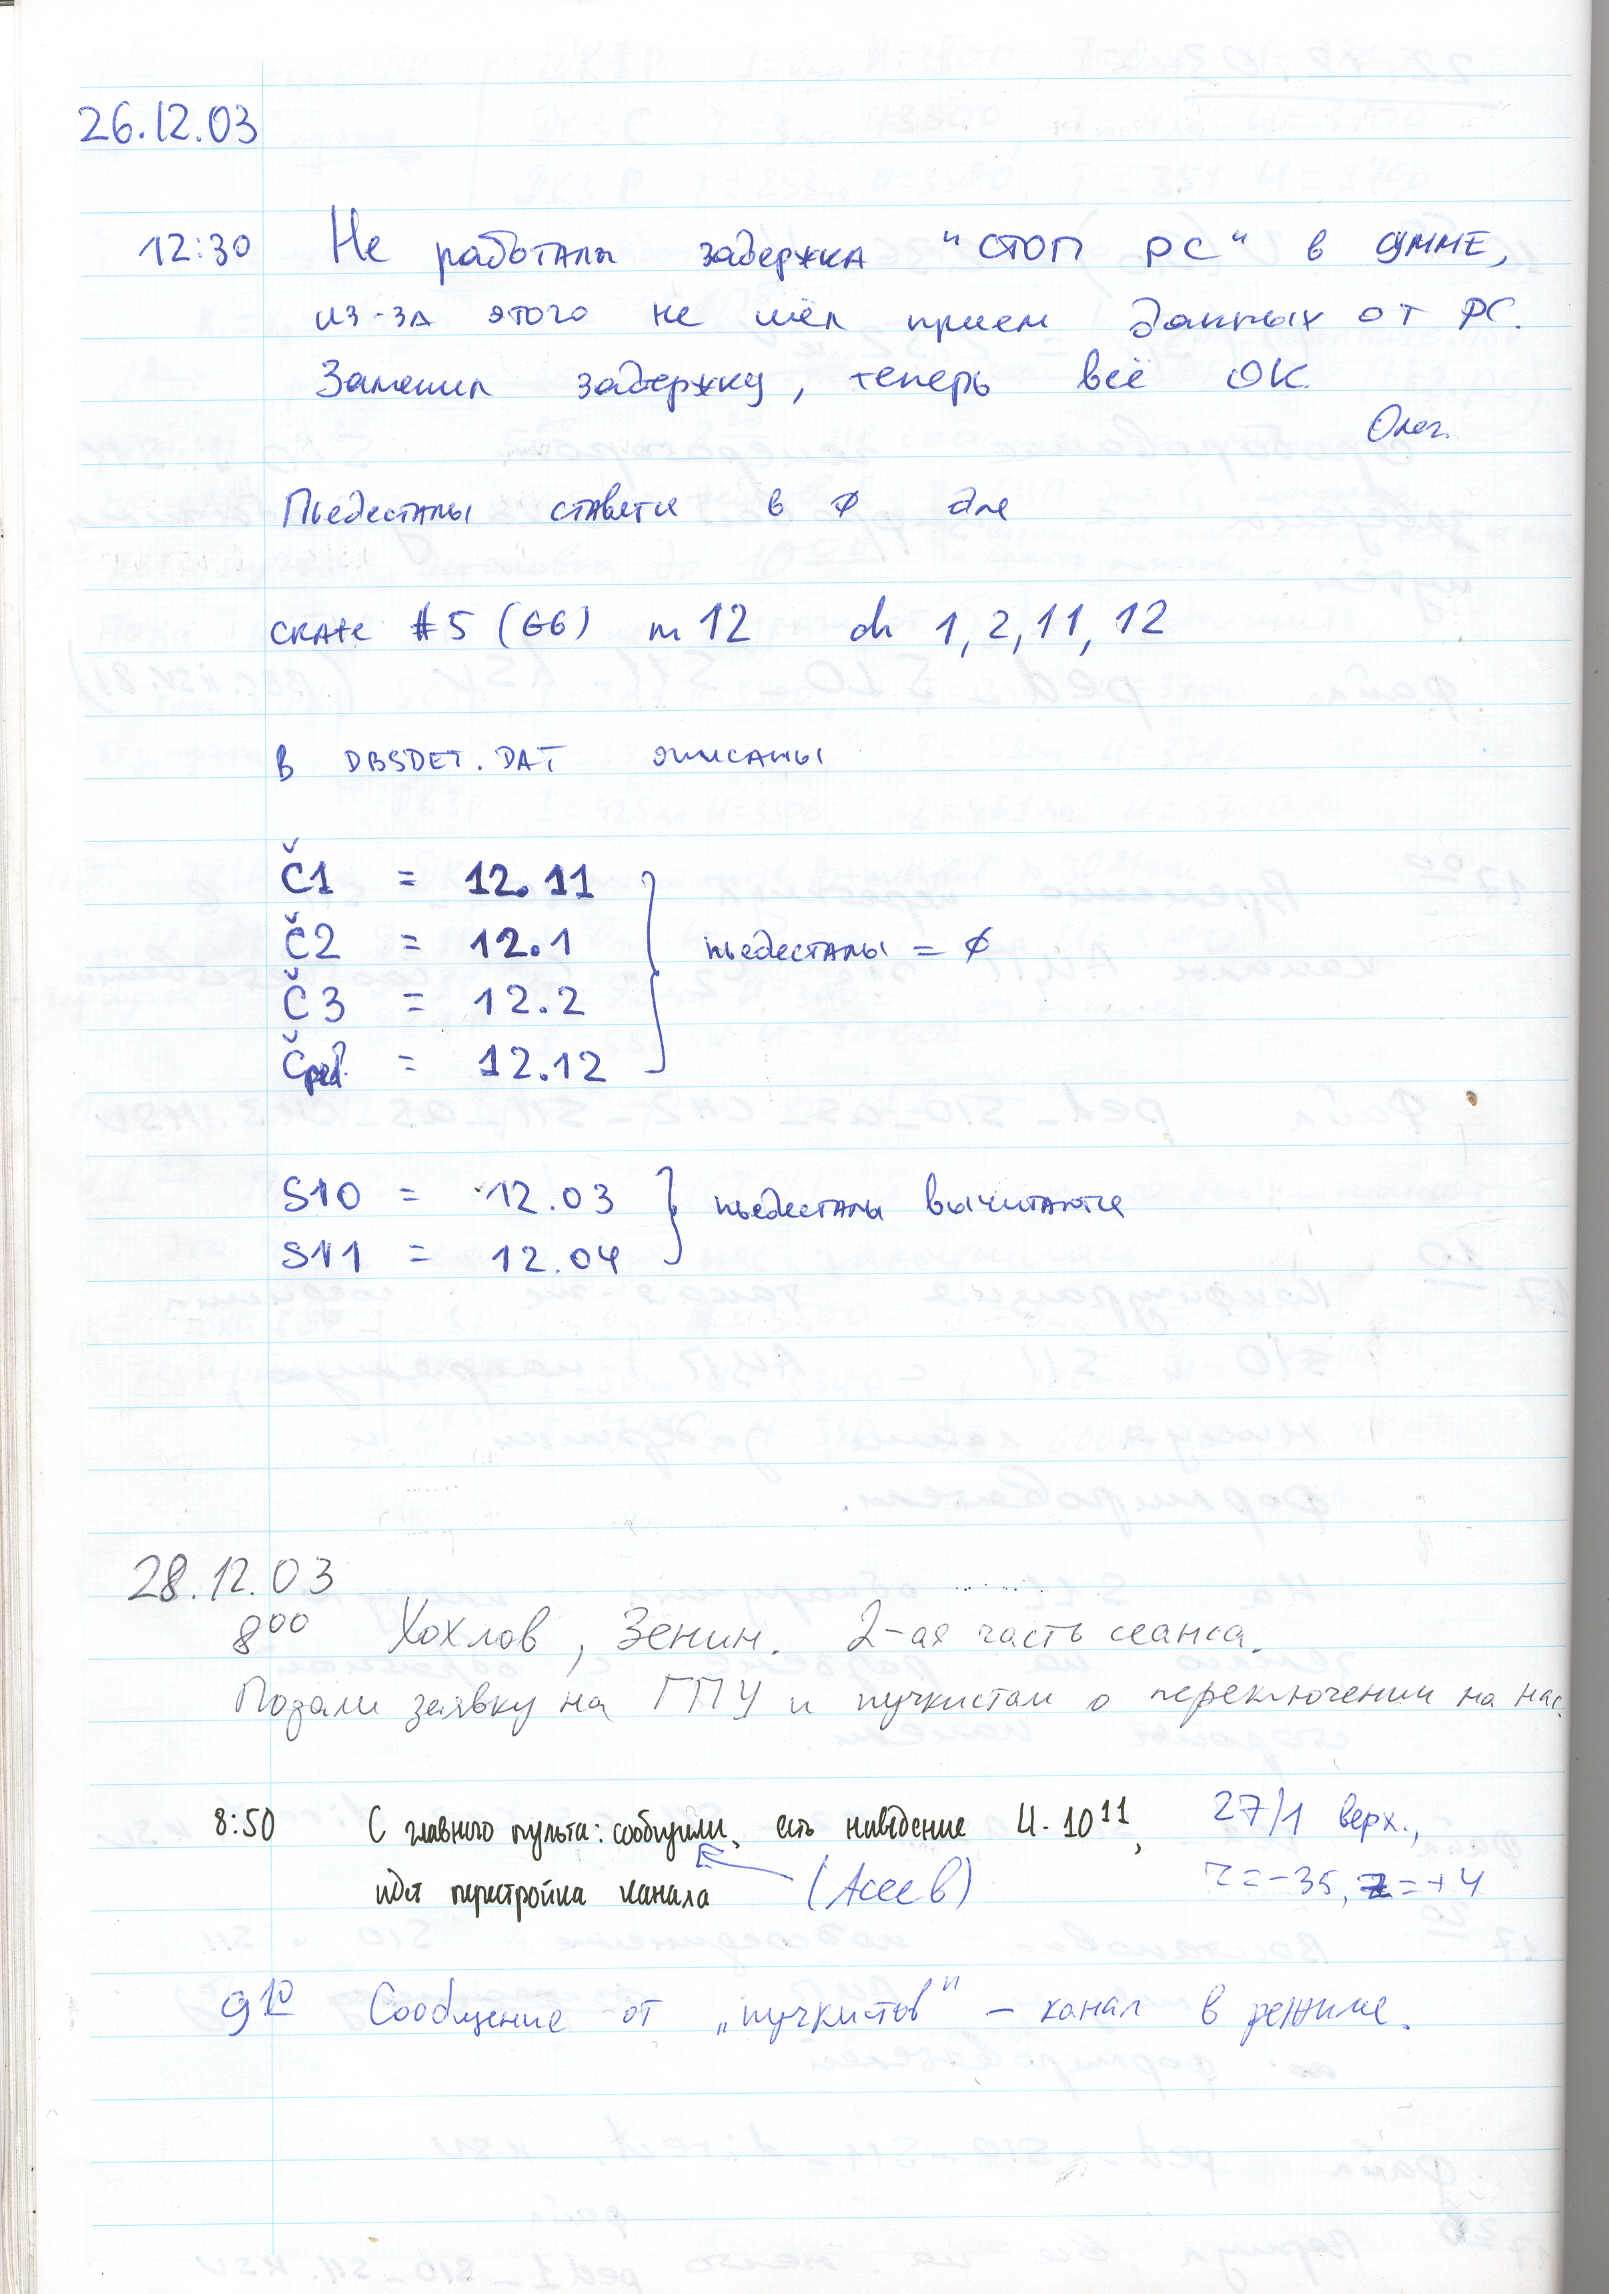 26.12.03
12:30 Не работала задержка "СТОП РС" в сумме,
из-за этого не шёл прием данных от РС.
Заменил задержку, теперь всё ОК.
Олег.
Пьедесталы ставятся в ∅ для
crate #5 (G6) m 12 ch 1, 2, 11, 12
в DBSDET.DAT описаны
Č1 = 12.11
Č2 = 12.1
Č3 = 12.2
пьедесталы = ∅
Č = 12.12
S10 = 12.03
S11 = 12.04
пьедесталы вычитаются
28.12.03
8⁰⁰ Хохлов, Зенин. 2-ая часть сеанса.
Подали заявку на ГПУ и пучкистам о переключении на нас.
8:50 С главного пульта: сообщили, есть наведение 4·10¹¹, 27/1 верх.,
идёт перестройка канала (Асеев) r=-35, z=+4
9¹⁰ Сообщение от „пучкистов" – канал в режиме.